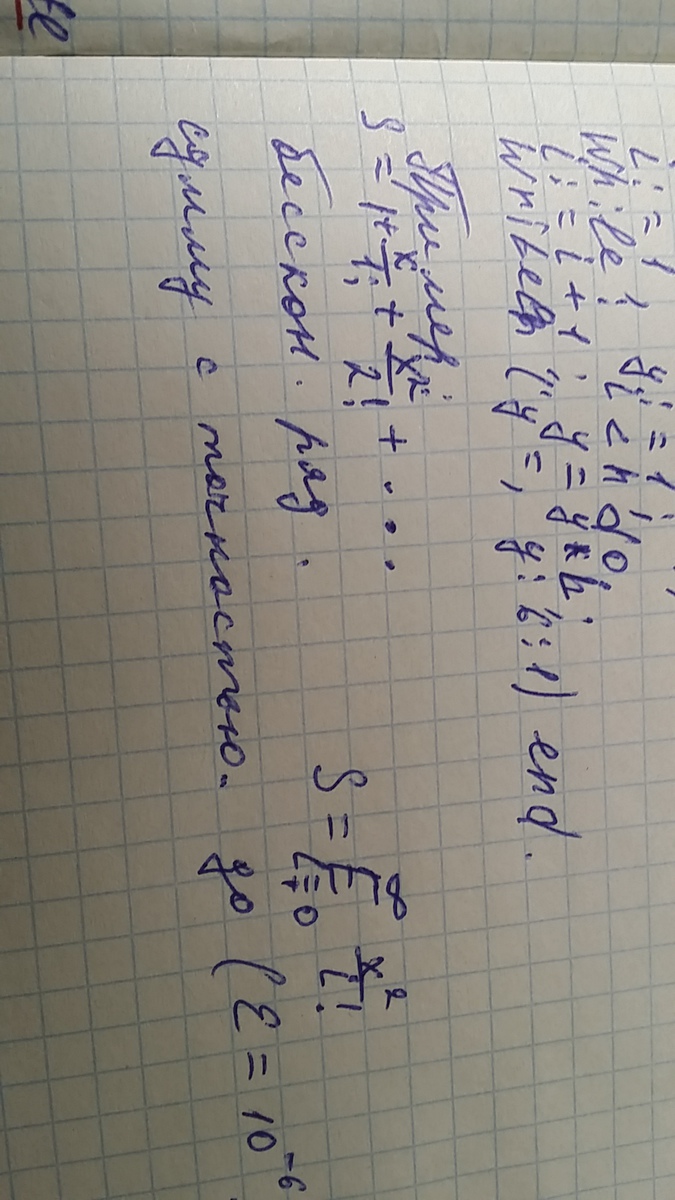 i = 1 ! y' = 1 ;
while i < n do
i = i + 1 ; y = y * i ;
writeln ("y =, y : 6 : 1) end.
Пример:
S = 1 + x/1! + x²/2! + ...
S = ∑ ∞ i = 0 x²/i!
бесскон. ряд.
сумму с точностью. до (ε = 10⁻⁶